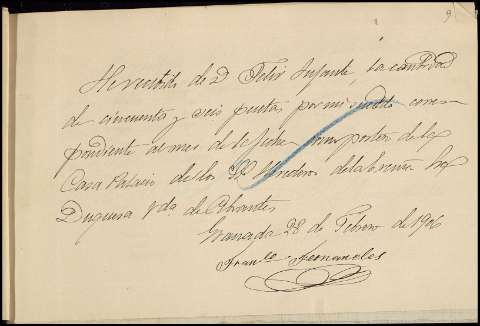 9
He recibido de D. Felix Infante, la cantidad
de cincuenta y seis pesetas, por mi sueldo corres-
pondiente al mes de la fecha como portero de la
Casa Palacio de los Sres herederos de la Exma Sra
Duquesa Vda de Abrantes
Granada 28 de Febrero de 1906
Franco Fernandes